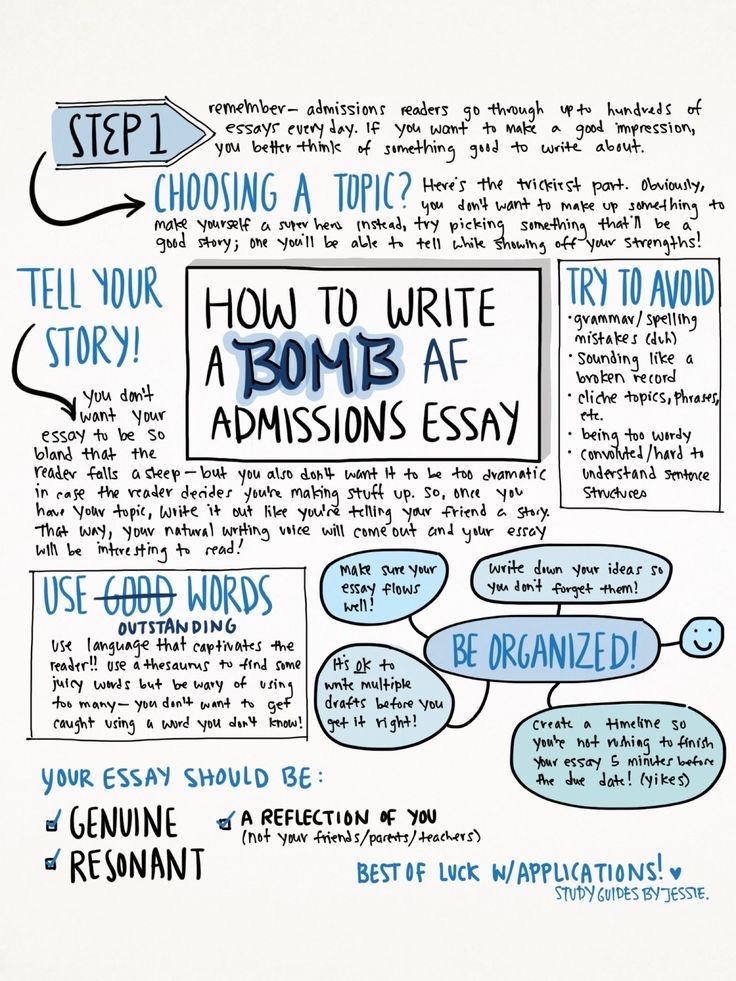 STEP 1
remember— admissions readers go through up to hundreds of
essays every day. If you want to make a good impression,
you better think of something good to write about.
CHOOSING A TOPIC?
Here's the trickiest part. Obviously,
you don't want to make up something to
make yourself a super hero. Instead, try picking something that'll be a
good story; one you'll be able to tell while showing off your strengths!
TELL YOUR
STORY!
You don't
want your
essay to be so
bland that the
reader falls asleep—but you also don't want it to be too dramatic
in case the reader decides you're making stuff up. So, once you
have your topic, write it out like you're telling your friend a story.
That way, your natural writing voice will come out and your essay
will be interesting to read!
HOW TO WRITE
A BOMB AF
ADMISSIONS ESSAY
TRY TO AVOID
• grammar/spelling
mistakes (duh)
• Sounding like a
broken record
• cliche topics, phrases,
etc.
• being too wordy
• convoluted/hard to
understand sentence
structures
USE GOOD WORDS
OUTSTANDING
Use language that captivates the
reader!! Use a thesaurus to find some
juicy words but be wary of using
too many—you don't want to get
caught using a word you don't know!
Make sure your
essay flows
well!
Write down your ideas so
you don't forget them!
BE ORGANIZED!
It's OK to
write multiple
drafts before you
get it right!
Create a timeline so
you're not rushing to finish
your essay 5 minutes before
the due date! (yikes)
YOUR ESSAY SHOULD BE:
GENUINE
RESONANT
A REFLECTION OF YOU
(not your friends/parents/teachers)
BEST OF LUCK W/APPLICATIONS! ♥
STUDY GUIDES BY JESSIE.